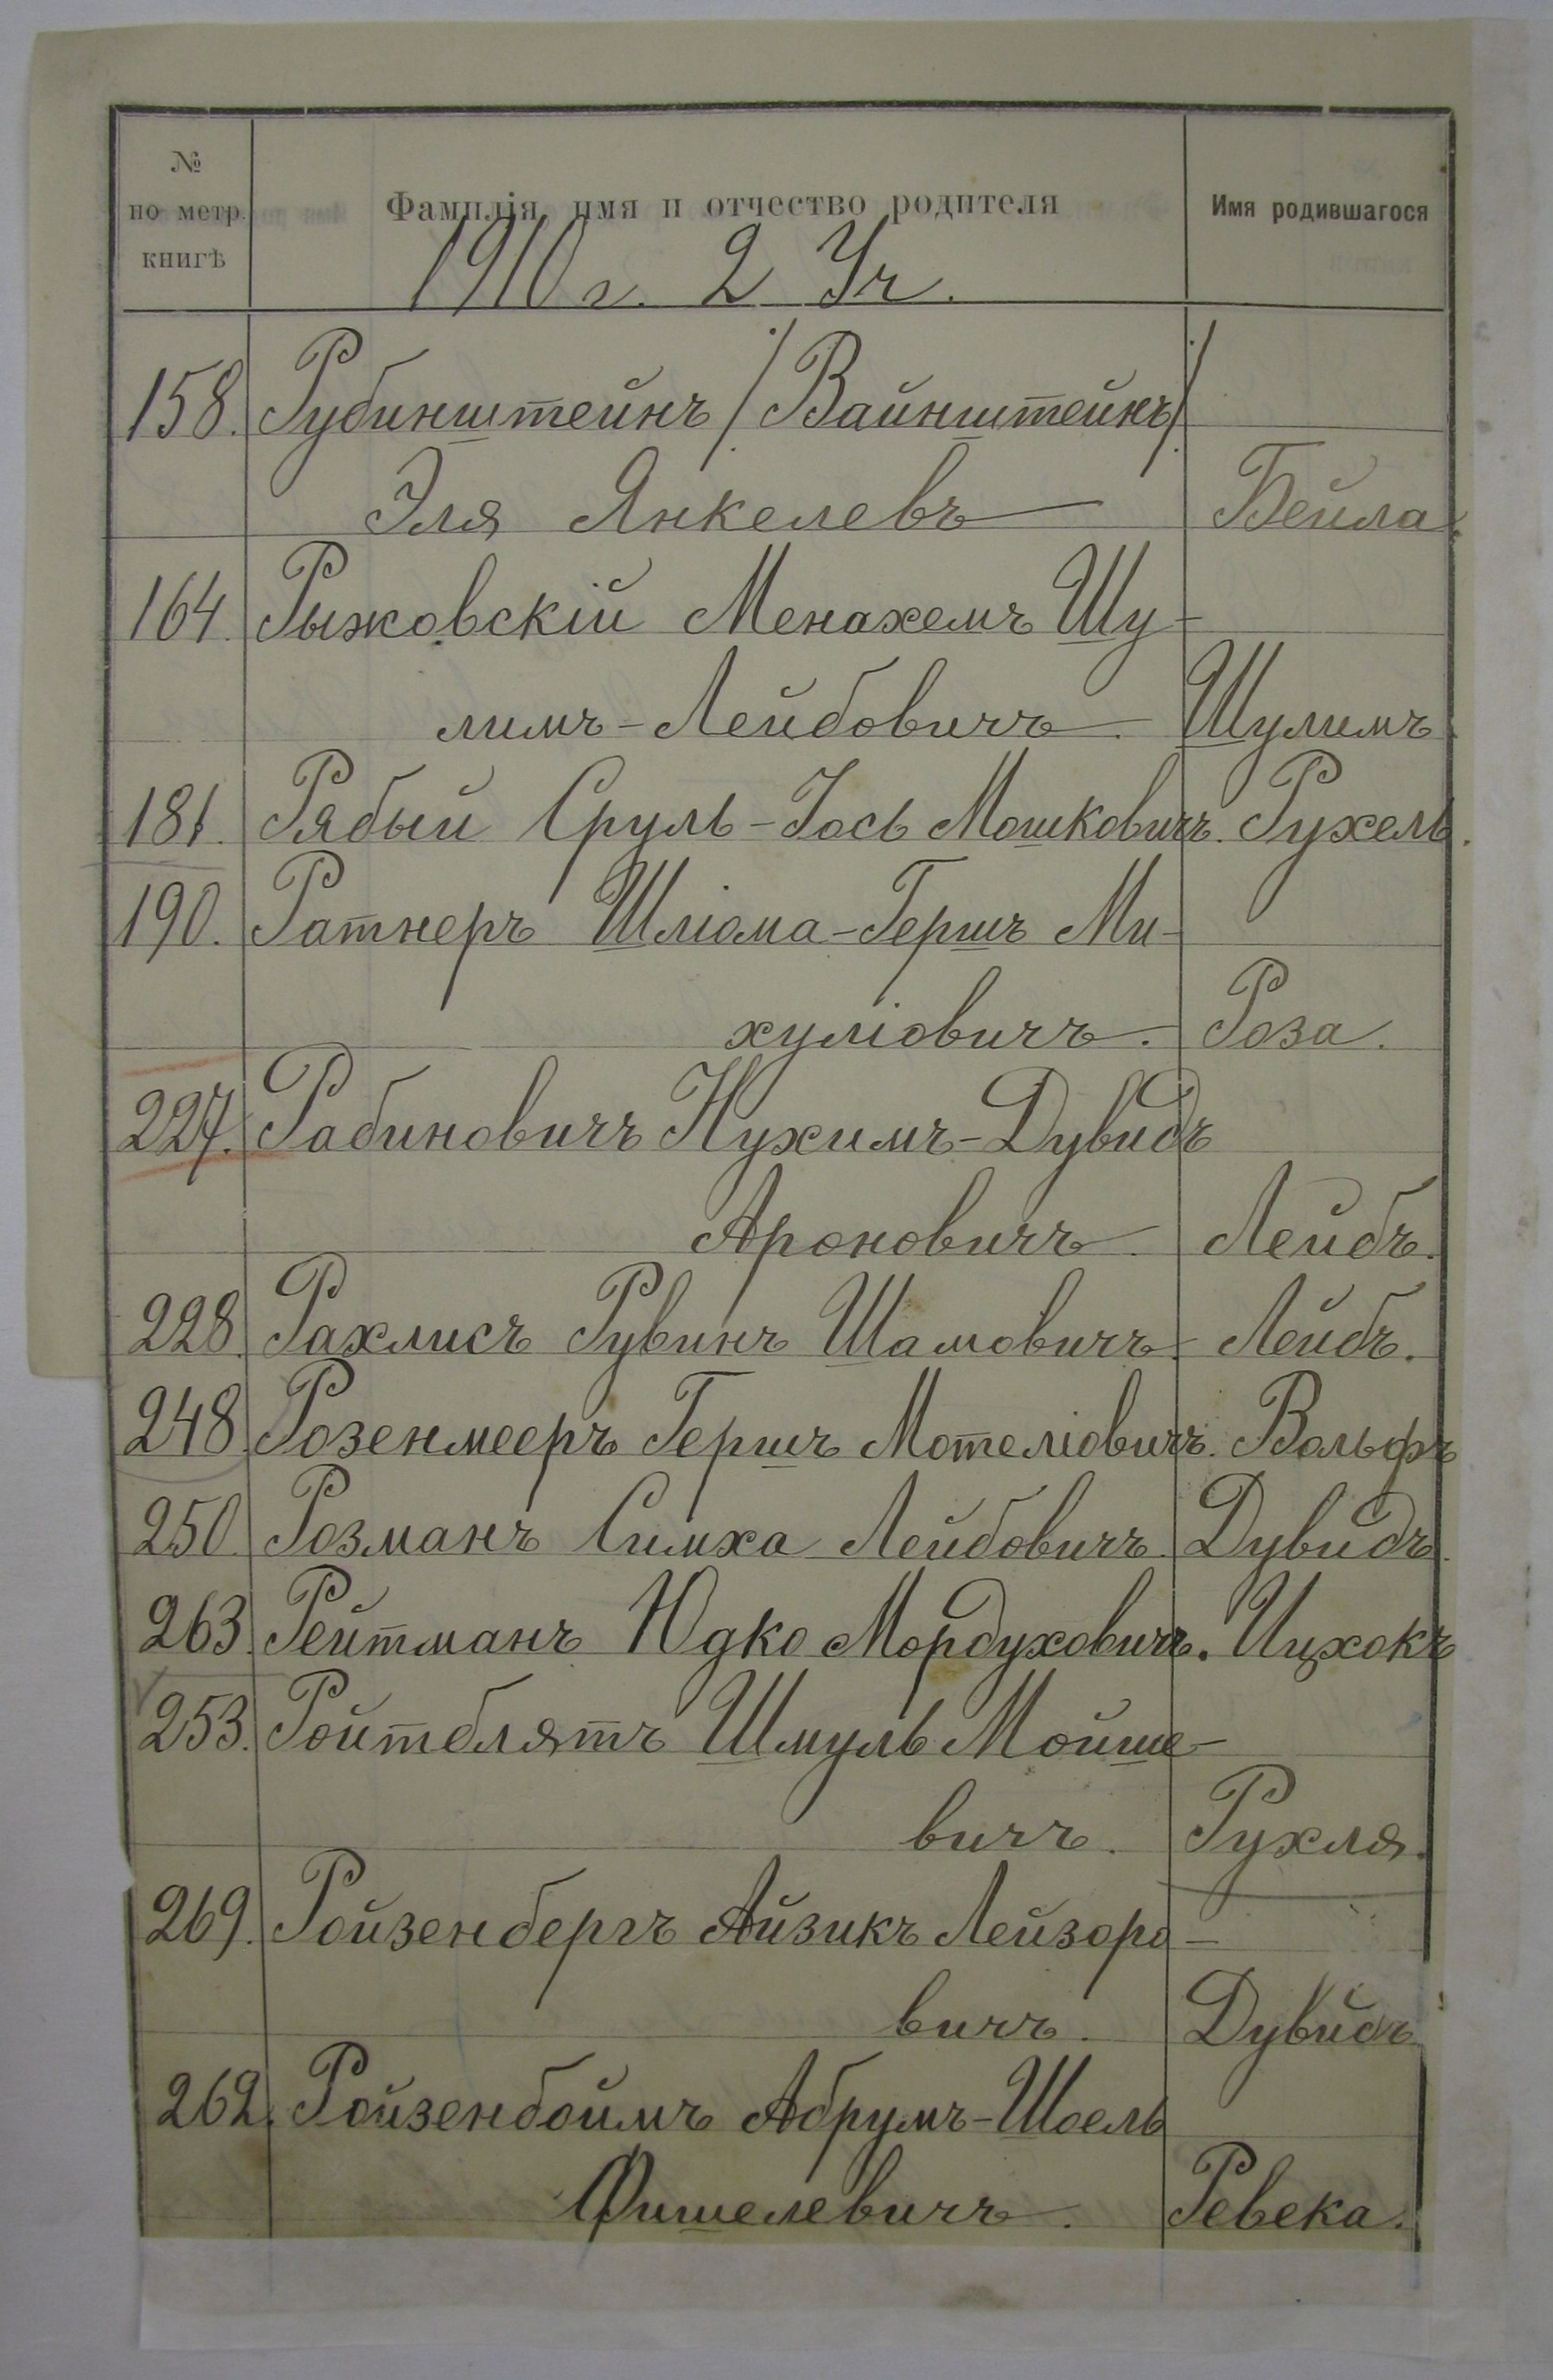 №
по метр.
книгѣ
Фамилія, имя и отчество родителя
Имя родившагося
1910 г. 2 Уч.
158. Рубинштейнъ /Вайнштейнъ/
Эля Янкелевъ Бейла.
164. Рыжовскій Менахемъ Шу-
лимъ-Лейбовичъ. Шулимъ
181. Рябый Сруль-Іось Мошковичъ. Рухель.
190. Ратнеръ Шліома-Гершъ Ми-
хуліовичъ. Роза.
227. Рабиновичъ Нухимъ-Дувидъ
Ароновичъ. Лейбъ.
228. Рахлисъ Рувинъ Шамовичъ. Лейбъ.
248. Розенмееръ Гершъ Мотеліовичъ. Вольфъ
250. Розманъ Симха Лейбовичъ. Дувидъ.
263. Рейтманъ Юдко Мордуховичъ. Ицхокъ
253. Ройтблятъ Шмуль Мойше-
вичъ. Рухля.
269. Ройзенбергъ Айзикъ Лейзоро-
вичъ. Дувидъ
262. Ройзенбоймъ Абрумъ-Шоель
Фишелевичъ. Ревека.